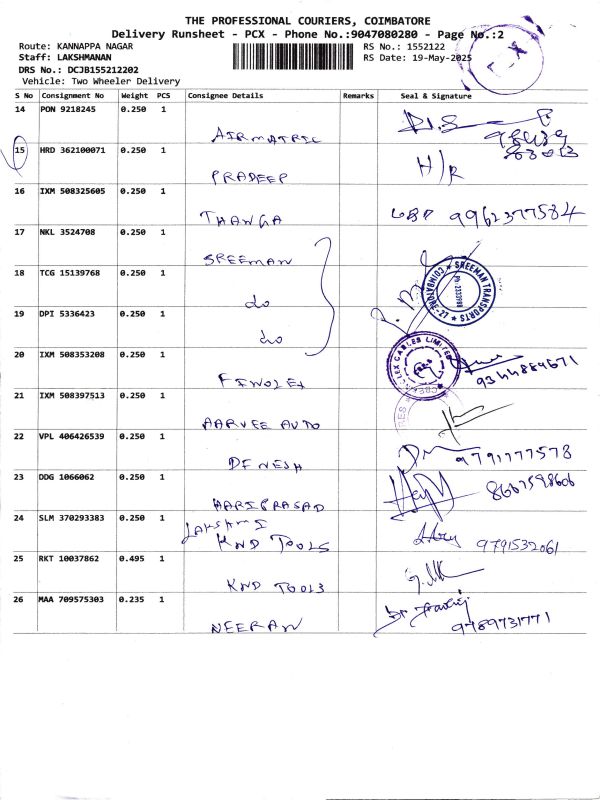 THE PROFESSIONAL COURIERS, COIMBATORE
Delivery Runsheet - PCX - Phone No.:9047080280 - Page No.:2
Route: KANNAPPA NAGAR RS No.: 1552122
Staff: LAKSHMANAN RS Date: 19-May-2025
DRS No.: DCJB155212202
Vehicle: Two Wheeler Delivery
S No Consignment No Weight PCS Consignee Details Remarks Seal & Signature
14 PON 9218245 0.250 1
AIRMATRIC
15 HRD 362100071 0.250 1 H/R
PRADEEP
16 IXM 508325605 0.250 1
THANGA 9962377584
17 NKL 3524708 0.250 1
SREEMAN
18 TCG 15139768 0.250 1 SREEMAN TRANSPORTS
do COIMBATORE-27
19 DPI 5336423 0.250 1
do
20 IXM 508353208 0.250 1 FLEX CABLES LIMITED
FINOLEX 9344889671
21 IXM 508397513 0.250 1
AARVEE AUTO
22 VPL 406426539 0.250 1
DENESH 9791777578
23 DDG 1066062 0.250 1
HARIPRASAD 8667598606
24 SLM 370293383 0.250 1
LAKSHMI
KND TOOLS 9791532061
25 RKT 10037862 0.495 1
KND TOOLS
26 MAA 709575303 0.235 1
NEERAN 9789731771